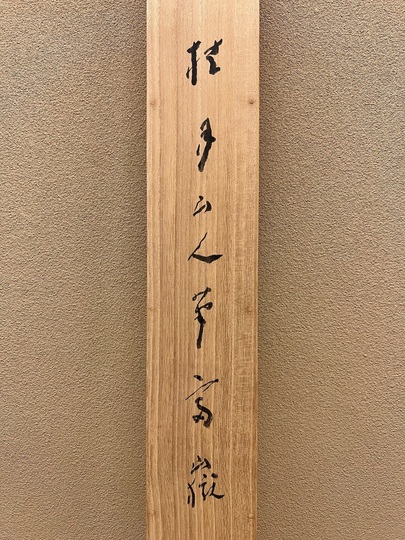 桂月山人筆富嶽